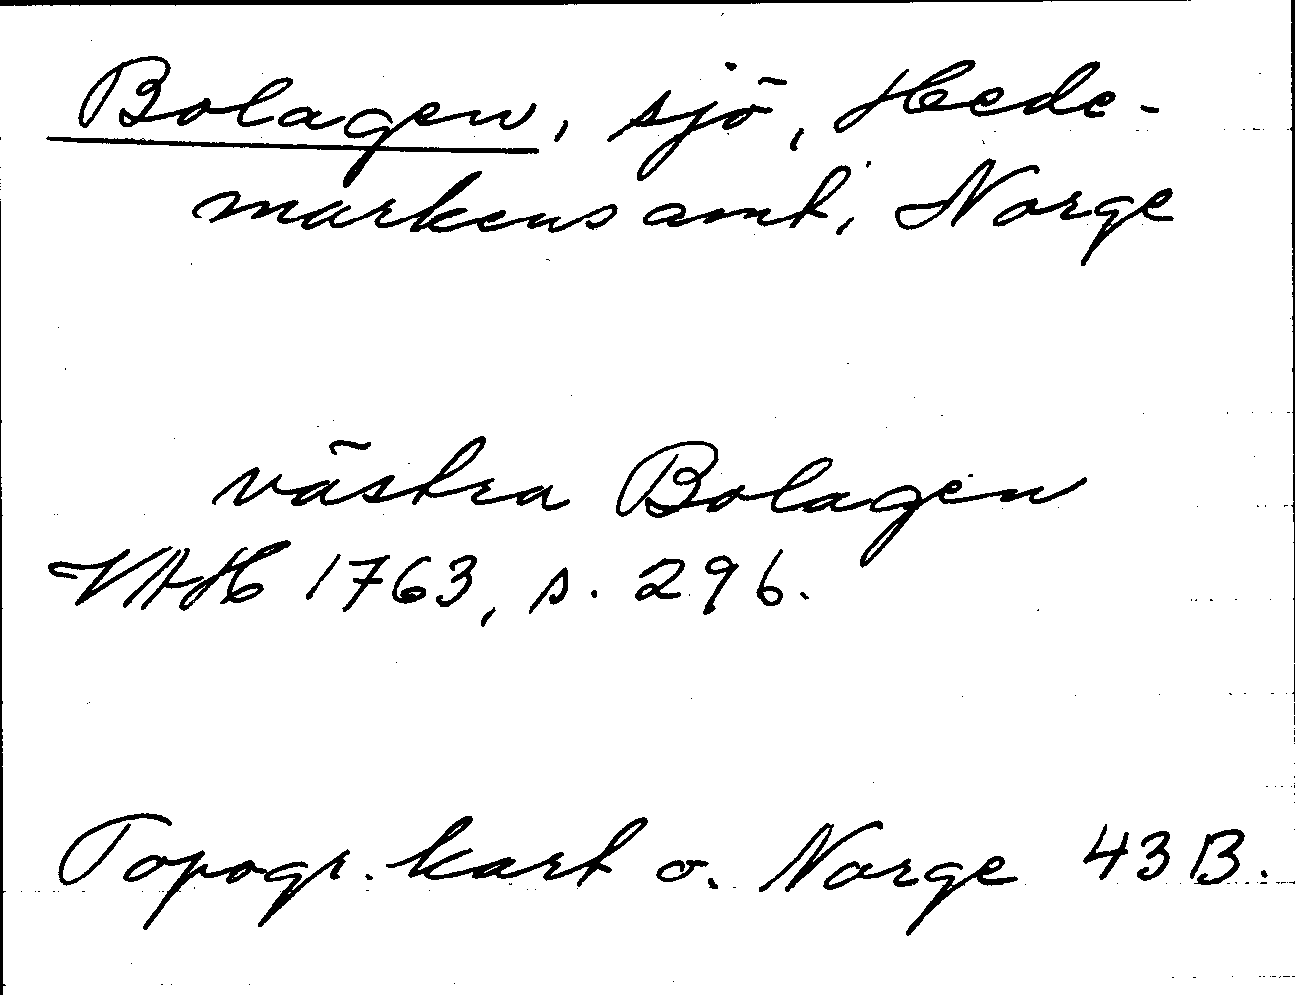 Bolagen, sjö, Hede-
markens amt, Norge
västra Bolagen
VAH 1763, s. 296.
Topogr. kart o. Norge 43 B.